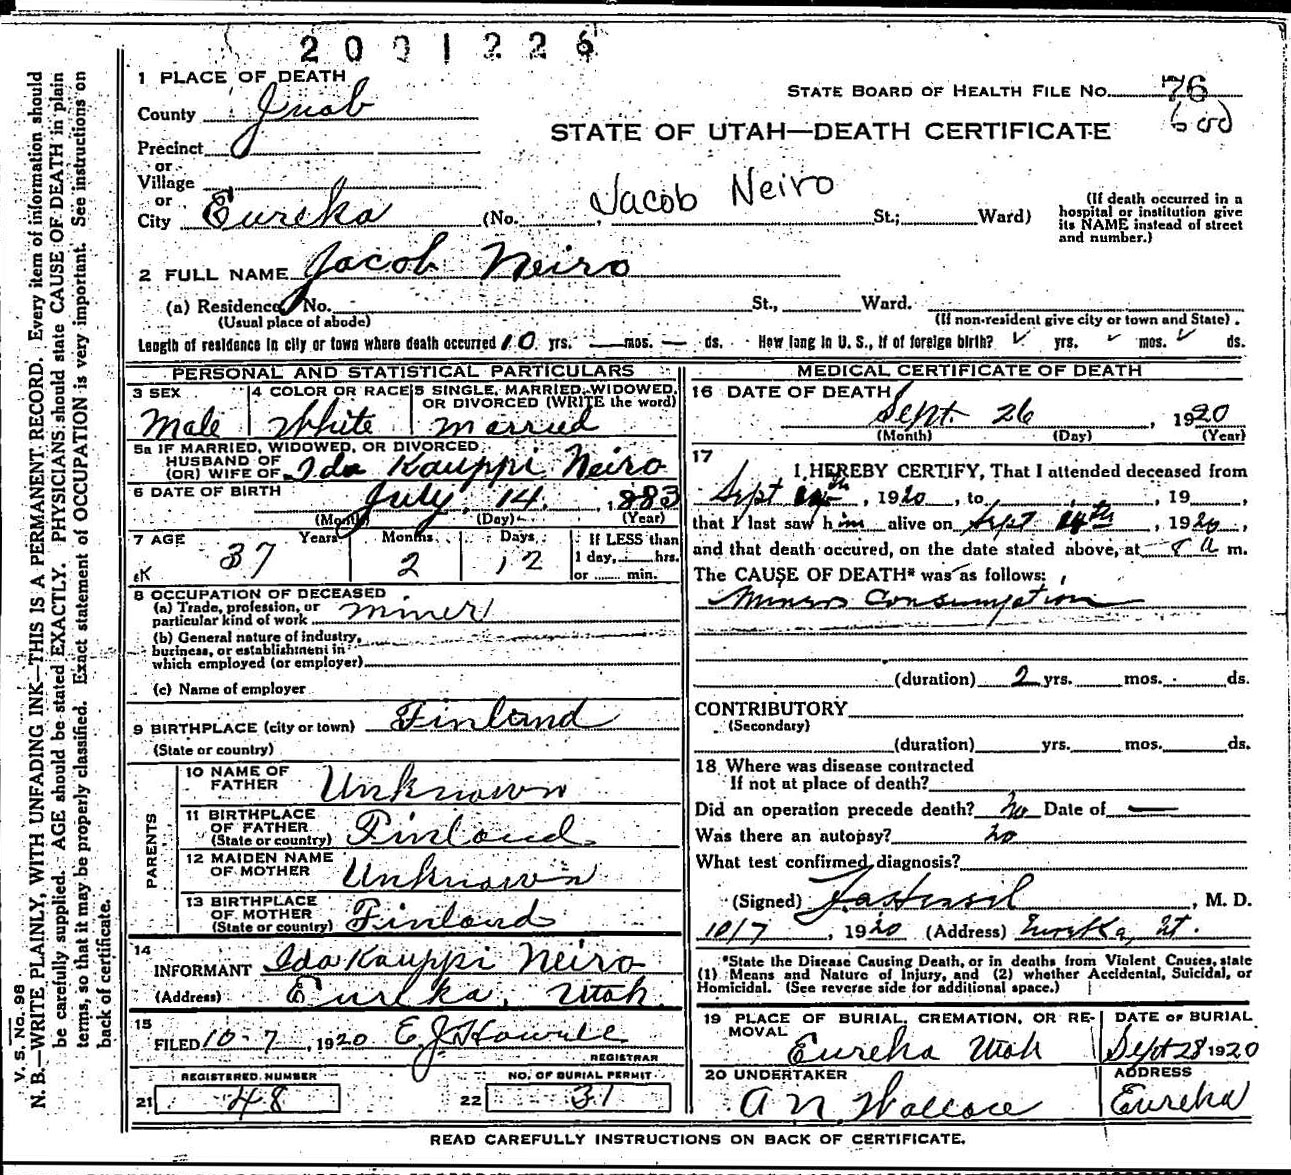 2001226
1 PLACE OF DEATH
County Juab
STATE BOARD OF HEALTH FILE No. 76
STATE OF UTAH—DEATH CERTIFICATE
Precinct
or
Village
or
City Eureka (No. Jacob Neiro St.; Ward)
(If death occurred in a
hospital or institution give
its NAME instead of street
and number.)
2 FULL NAME Jacob Neiro
(a) Residence, No. St., Ward.
(Usual place of abode) (If non-resident give city or town and State).
Length of residence in city or town where death occurred 10 yrs. — mos. — ds. How long in U. S., if of foreign birth? ✓ yrs. ✓ mos. ✓ ds.
PERSONAL AND STATISTICAL PARTICULARS
3 SEX
Male
4 COLOR OR RACE
White
5 SINGLE, MARRIED, WIDOWED,
OR DIVORCED (WRITE the word)
Married
5a IF MARRIED, WIDOWED, OR DIVORCED
HUSBAND OF
(OR) WIFE OF Ida Kauppi Neiro
6 DATE OF BIRTH
July 14, 1883
(Month) (Day) (Year)
7 AGE Years Months Days
37 2 12
If LESS than
1 day, hrs.
or min.
8 OCCUPATION OF DECEASED
(a) Trade, profession, or
particular kind of work miner
(b) General nature of industry,
business, or establishment in
which employed (or employer)
(c) Name of employer
9 BIRTHPLACE (city or town) Finland
(State or country)
PARENTS
10 NAME OF
FATHER Unknown
11 BIRTHPLACE
OF FATHER
(State or country) Finland
12 MAIDEN NAME
OF MOTHER Unknown
13 BIRTHPLACE
OF MOTHER
(State or country) Finland
14
INFORMANT Ida Kauppi Neiro
(Address) Eureka, Utah
15
FILED 10-7, 1920 E. J. Howell
REGISTRAR
REGISTERED NUMBER
21 48
NO. OF BURIAL PERMIT
22 31
MEDICAL CERTIFICATE OF DEATH
16 DATE OF DEATH
Sept. 26, 1920
(Month) (Day) (Year)
17
I HEREBY CERTIFY, That I attended deceased from
Sept 14th, 1920, to , 19 ,
that I last saw him alive on Sept 14th, 1920,
and that death occured, on the date stated above, at 8 a m.
The CAUSE OF DEATH* was as follows:
Miners Consumption
(duration) 2 yrs. mos. ds.
CONTRIBUTORY
(Secondary)
(duration) yrs. mos. ds.
18 Where was disease contracted
If not at place of death?
Did an operation precede death? No Date of —
Was there an autopsy? no
What test confirmed diagnosis?
(Signed) , M. D.
10/7, 1920 (Address) Eureka, Ut.
*State the Disease Causing Death, or in deaths from Violent Causes, state
(1) Means and Nature of Injury, and (2) whether Accidental, Suicidal, or
Homicidal. (See reverse side for additional space.)
19 PLACE OF BURIAL, CREMATION, OR RE-
MOVAL
Eureka Utah
DATE OF BURIAL
Sept 28 1920
20 UNDERTAKER
A N Wallace
ADDRESS
Eureka
READ CAREFULLY INSTRUCTIONS ON BACK OF CERTIFICATE.
V. S. No. 98
N. B.—WRITE PLAINLY, WITH UNFADING INK—THIS IS A PERMANENT RECORD. Every item of information should
be carefully supplied. AGE should be stated EXACTLY. PHYSICIANS should state CAUSE OF DEATH in plain
terms, so that it may be properly classified. Exact statement of OCCUPATION is very important. See instructions on
back of certificate.